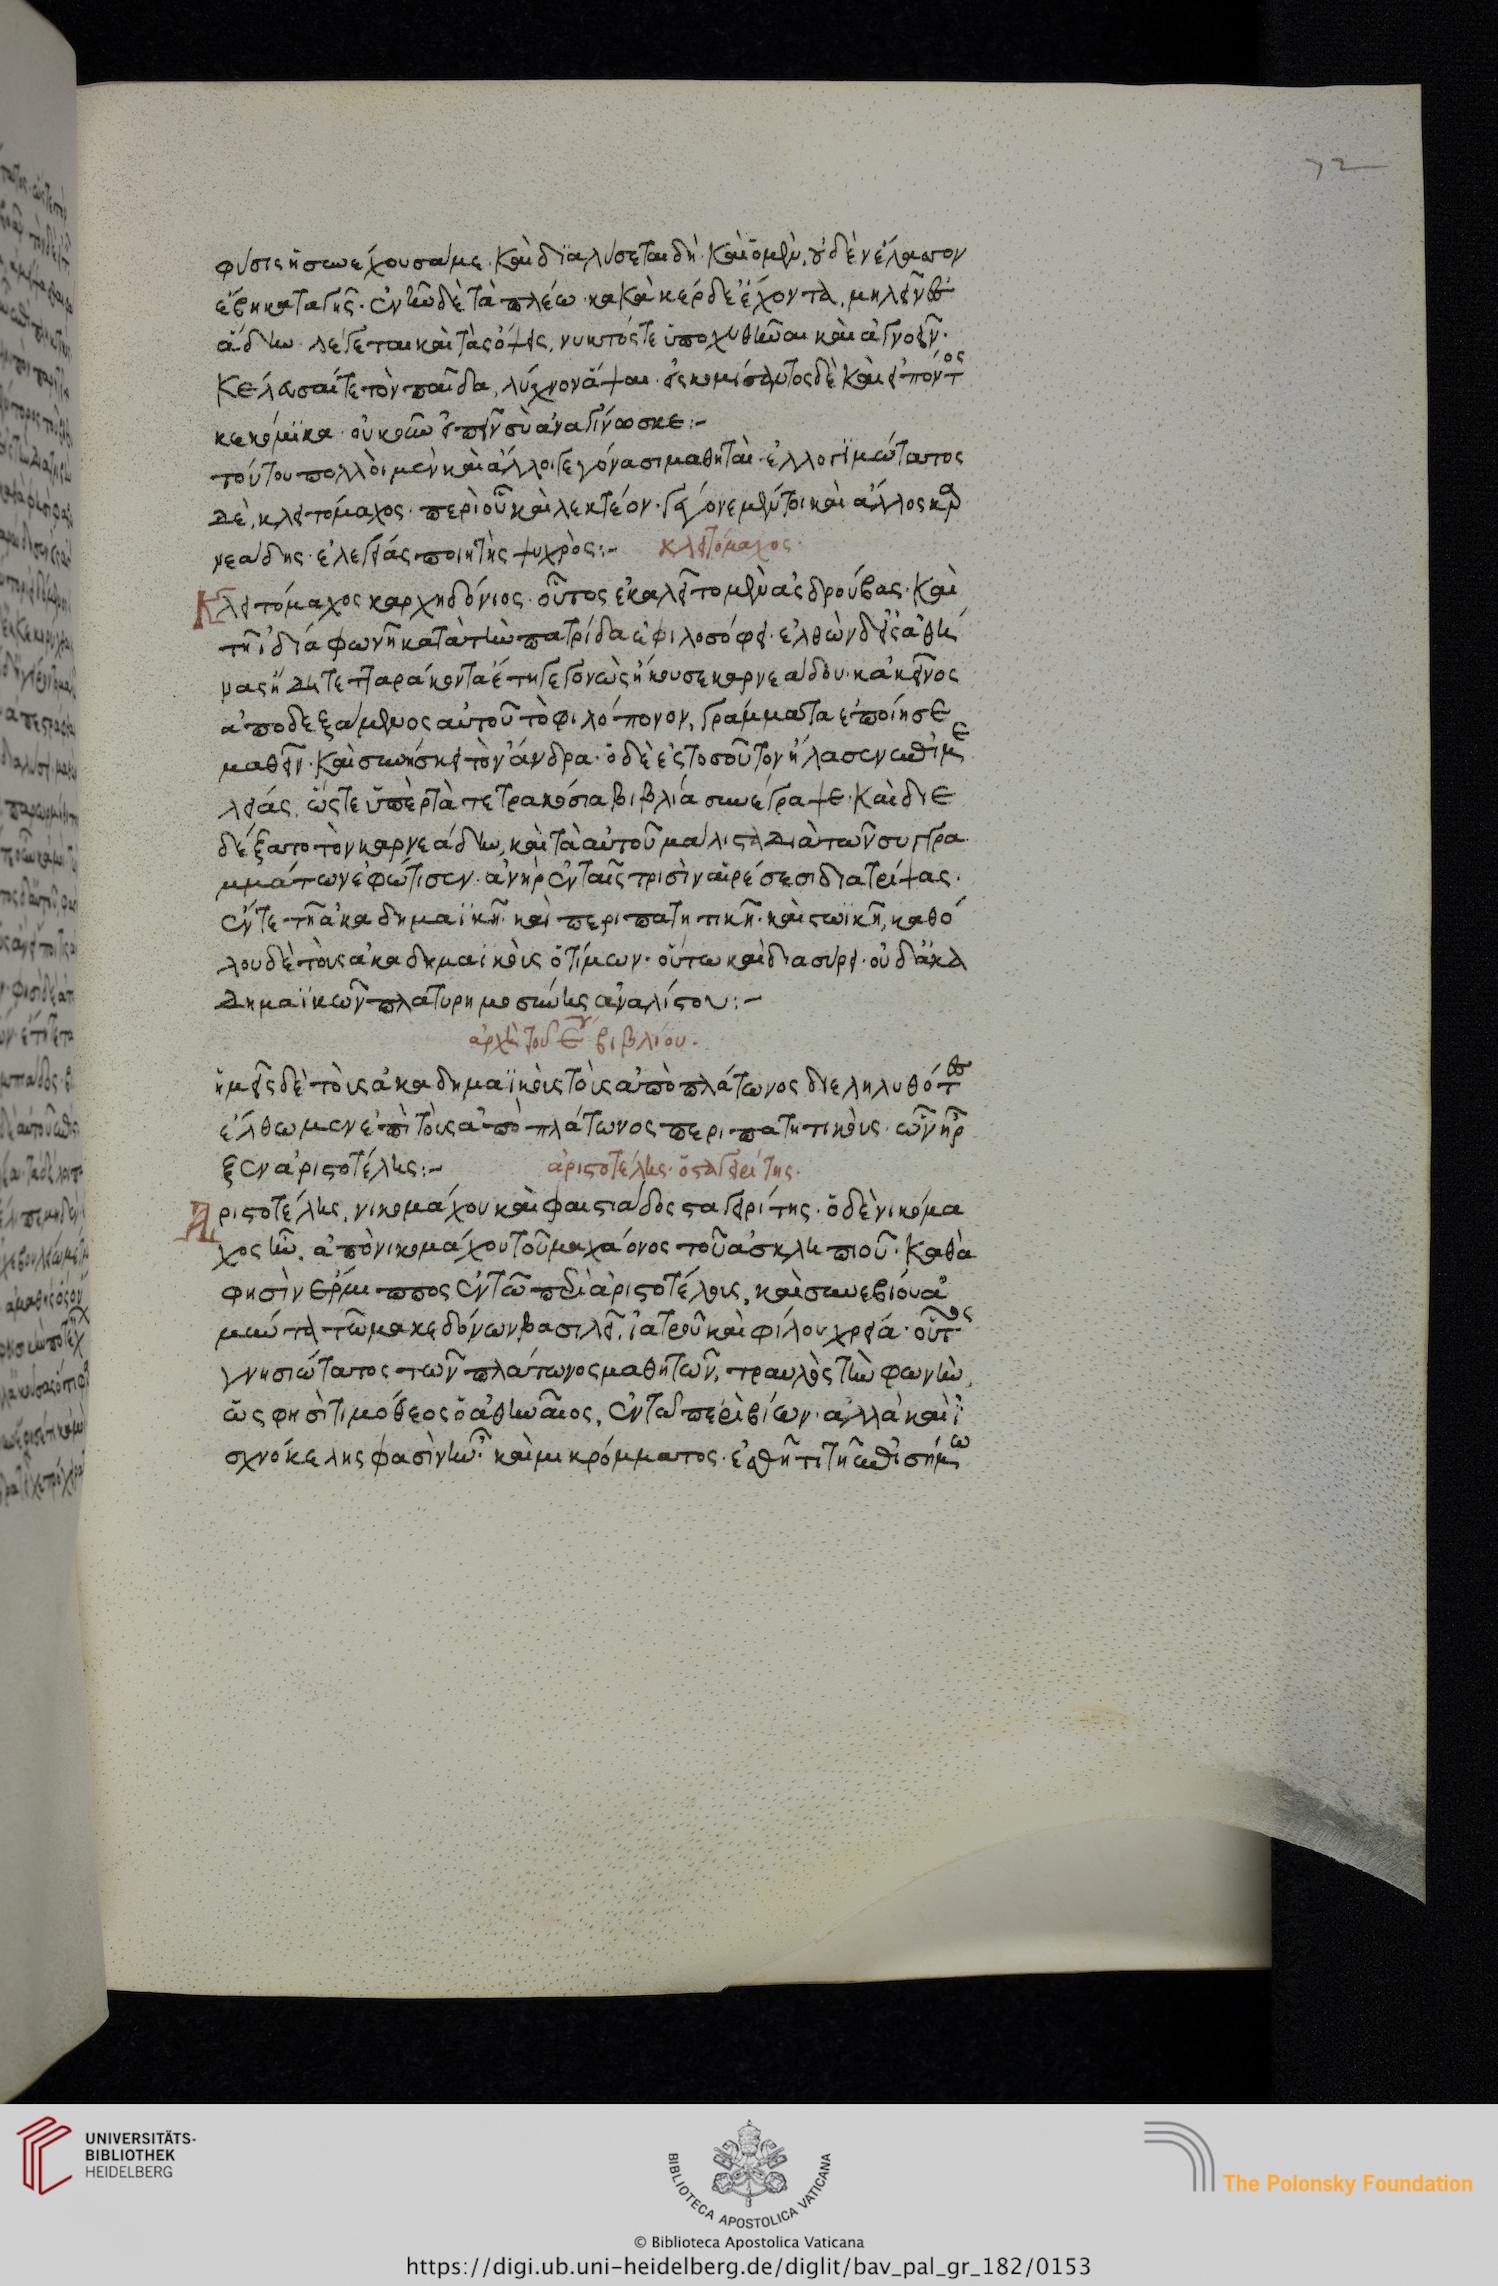 72
φύσις ἥ σε συνέχουσά με. καὶ διαλύσεται δή. καὶ ὁ μὲν, οὐδὲν ἔλαττον
ἔβη κατὰ γῆς. ἐνῆν δὲ τὰ πλέω κακὰ κέρδεϊ ἔχοντα, μηλεῖν
ἄδην. λέγεται καὶ τὰς ὄψεις, νυκτός τε ὑποχυθῆναι καὶ ἀγνοεῖν.
κελεῦσαί τε τὸν παῖδα, λύχνον ἅψαι. εἰσκομίσαντος δὲ καὶ εἰπόντος
κεκόμικα. οὐκοῦν εἰπεῖν σὺ ἀναγίνωσκε:-
τούτου πολλοὶ μὲν καὶ ἄλλοι γεγόνασι μαθηταὶ. ἐλλογιμώτατος
δὲ, κλειτόμαχος. περὶ οὗ καὶ λεκτέον. γέγονε μέντοι καὶ ἄλλος καρ
νεάδης. ἐλεγείας ποιητὴς ψυχρὸς:- κλειτόμαχος.
Κλειτόμαχος καρχηδόνιος. οὗτος ἐκαλεῖτο μὲν ἀσδρούβας. καὶ
τῇ ἰδίᾳ φωνῇ κατὰ τὴν πατρίδα ἐφιλοσόφει. ἐλθὼν δ' εἰς ἀθή
νας ἤδη τετταράκοντα ἔτη γεγονὼς ἤκουσε καρνεάδου. κἀκεῖνος
ἀποδεξάμενος αὐτοῦ τὸ φιλόπονον, γράμματα ἐποίησε
μαθεῖν. καὶ συνήσκει τὸν ἄνδρα. ὁ δὲ ἐς τοσοῦτον ἤλασεν ἐπιμε
λείας, ὥστε ὑπὲρ τὰ τετρακόσια βιβλία συνέγραψε. καὶ διε
δέξατο τὸν καρνεάδην, καὶ τὰ αὐτοῦ μάλιστα διὰ τῶν συγγρα
μμάτων ἐφώτισεν. ἀνὴρ ἐν ταῖς τρισὶν αἱρέσεσι διατρίψας.
ἔν τε τῇ ἀκαδημαϊκῇ. καὶ περιπατητικῇ. καὶ στωϊκῇ, καθό
λου δὲ τοὺς ἀκαδημαϊκοὺς ὁ τίμων. οὕτω καὶ διασύρει. οὐδ' ἀκα
δημαϊκῶν πλατυρημοσύνης ἀναλίστου:-
ἀρχὴ τοῦ ε' βιβλίου.
ἡμεῖς δὲ τοὺς ἀκαδημαϊκοὺς τοὺς ἀπὸ πλάτωνος διεληλυθότες
ἔλθωμεν ἐπὶ τοὺς ἀπὸ πλάτωνος περιπατητικοὺς. ὧν ἦρ
ξεν ἀριστοτέλης:- ἀριστοτέλης. ὁ σταγειρίτης.
Ἀριστοτέλης, νικομάχου καὶ φαιστιάδος σταγειρίτης. ὁ δὲ νικόμα
χος ἦν. ἀπὸ νικομάχου τοῦ μαχάονος τοῦ ἀσκληπιοῦ. καθὰ
φησὶν ἕρμιππος ἐν τῷ περὶ ἀριστοτέλους, καὶ συνεβίου ἀ
μύντα τῷ μακεδόνων βασιλεῖ. ἰατροῦ καὶ φίλου χρείᾳ. οὗτος
γνησιώτατος τῶν πλάτωνος μαθητῶν, τραυλὸς τὴν φωνὴν,
ὥς φησὶ τιμόθεος ὁ ἀθηναῖος, ἐν τῷ περὶ βίων. ἀλλὰ καὶ ἰ
σχνόκελης φασὶν ἦν. καὶ μικρόμματος. ἐσθῆτι τῇ ἐπισήμω
UNIVERSITÄTS-
BIBLIOTHEK
HEIDELBERG
BIBLIOTECA APOSTOLICA VATICANA
The Polonsky Foundation
© Biblioteca Apostolica Vaticana
https://digi.ub.uni-heidelberg.de/diglit/bav_pal_gr_182/0153